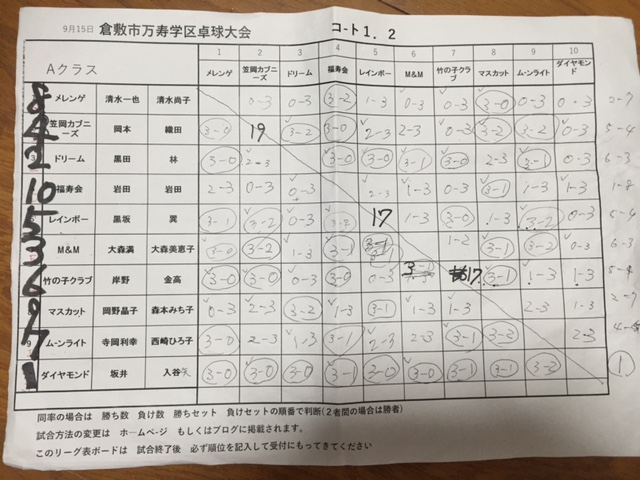 9月15日 倉敷市万寿学区卓球大会 コート1.2
1 2 3 4 5 6 7 8 9 10
Aクラス メレンゲ 笠岡カブニーズ ドリーム 福寿会 レインボー M&M 竹の子クラブ マスカット ムーンライト ダイヤモンド
8 メレンゲ 清水一也 清水尚子 0-3 0-3 3-2 1-3 0-3 0-3 3-0 0-3 0-3 2-7
4 笠岡カブニーズ 岡本 織田 3-0 19 3-2 3-0 2-3 2-3 0-3 3-2 3-2 0-3 5-4
2 ドリーム 黒田 林 3-0 2-3 3-0 3-0 3-1 3-0 2-3 3-1 0-3 6-3
10 福寿会 岩田 岩田 2-3 0-3 0-3 2-3 1-3 0-3 3-1 1-3 1-3 1-8
5 レインボー 黒坂 巽 3-1 3-2 0-3 3-2 17 1-3 3-0 1-3 3-2 0-3 5-4
3 M&M 大森満 大森美恵子 3-0 3-2 1-3 3-1 3-1 1-2 3-1 3-2 0-3 6-3
6 竹の子クラブ 岸野 金高 3-0 3-0 0-3 3-0 0-3 3-1 17 3-1 1-3 1-3 5-4
9 マスカット 岡野晶子 森本みち子 0-3 2-3 3-2 1-3 3-1 1-3 1-3 2-3 1-3 2-7
7 ムーンライト 寺岡利幸 西崎ひろ子 3-0 2-3 1-3 3-1 2-3 2-3 3-1 3-2 2-3
1 ダイヤモンド 坂井 入谷矢 3-0 3-0 3-0 3-1 3-0 3-0 3-1 3-1 3-2 1
同率の場合は 勝ち数 負け数 勝ちセット 負けセットの順番で判断(2者間の場合は勝者)
試合方法の変更は ホームページ もしくはブログに掲載されます。
このリーグ表ボードは 試合終了後 必ず順位を記入して受付にもってきてください